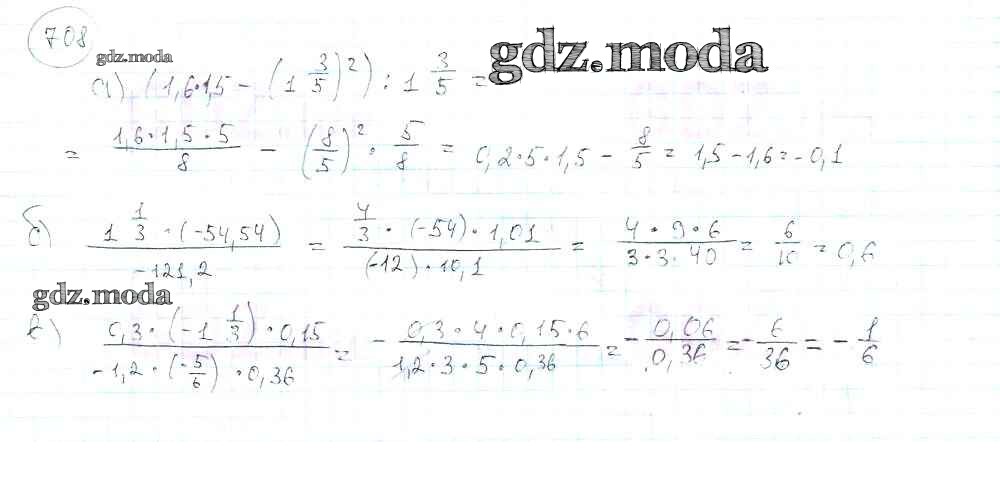 708
gdz.moda
gdz.moda
а) (1,6·1,5 − (1 3/5)²) : 1 3/5 =
= 1,6·1,5·5/8 − (8/5)² · 5/8 = 0,2·5·1,5 − 8/5 = 1,5 − 1,6 = −0,1
б) 1 1/3 · (−54,54) / −121,2 = 4/3 · (−54) · 1,01 / (−12) · 10,1 = 4·9·6 / 3·3·40 = 6/10 = 0,6
gdz.moda
в) 0,3 · (−1 1/3) · 0,15 / −1,2 · (−5/6) · 0,36 = − 0,3·4·0,15·6 / 1,2·3·5·0,36 = − 0,06/0,36 = − 6/36 = − 1/6